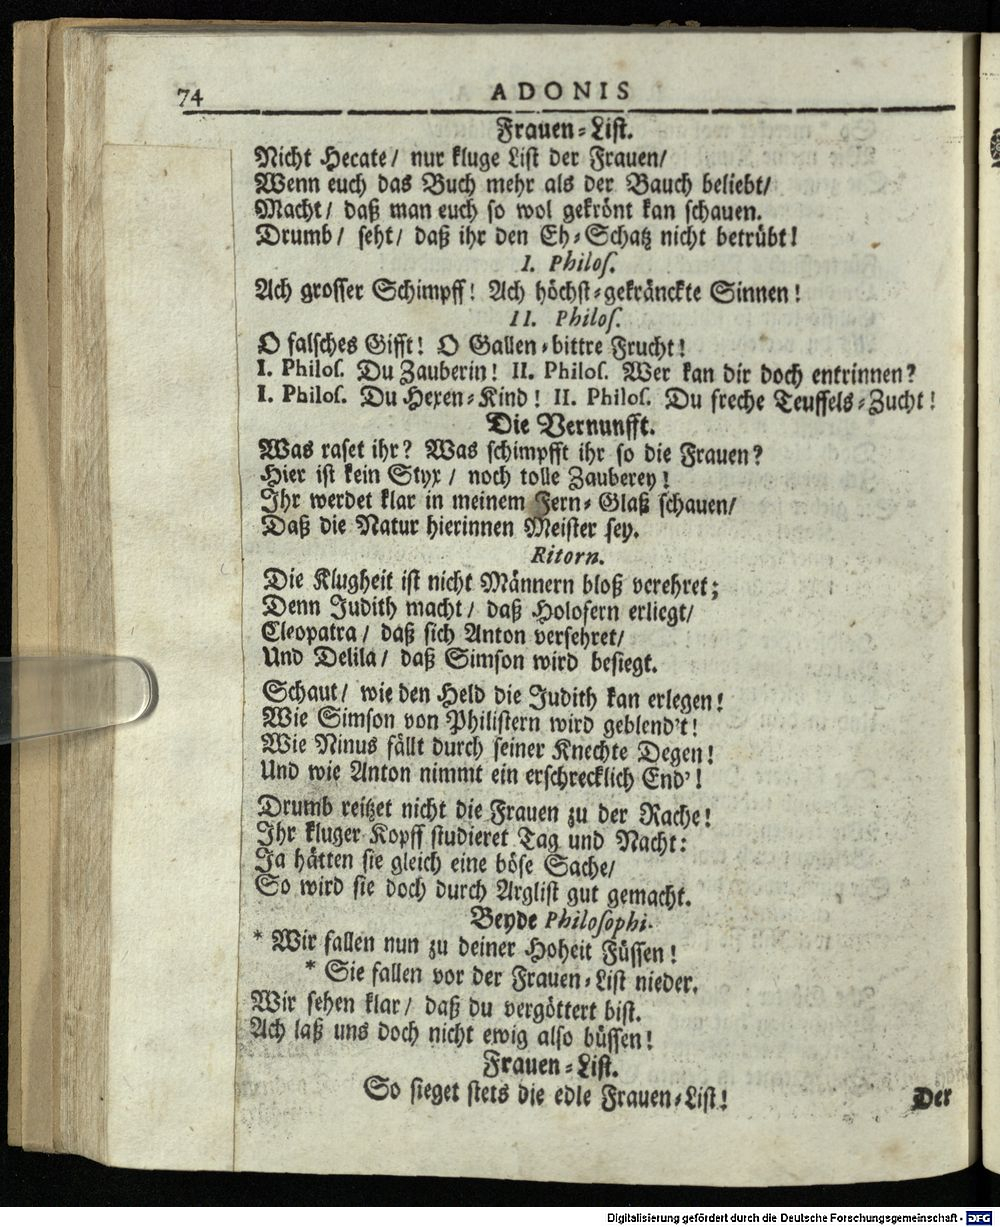 74 ADONIS
Frauen-List.
Nicht Hecate/ nur kluge List der Frauen/
Wenn euch das Buch mehr als der Bauch beliebt/
Macht/ daß man euch so wol gekrönt kan schauen.
Drumb/ seht/ daß ihr den Eh-Schatz nicht betrübt!
I. Philos.
Ach grosser Schimpff! Ach höchst-gekränckte Sinnen!
II. Philos.
O falsches Gifft! O Gallen-bittre Frucht!
I. Philos. Du Zauberin! II. Philos. Wer kan dir doch entrinnen?
I. Philos. Du Hexen-Kind! II. Philos. Du freche Teuffels-Zucht!
Die Vernunfft.
Was raset ihr? Was schimpfft ihr so die Frauen?
Hier ist kein Styx/ noch tolle Zauberey!
Ihr werdet klar in meinem Fern-Glaß schauen/
Daß die Natur hierinnen Meister sey.
Ritorn.
Die Klugheit ist nicht Männern bloß verehret;
Denn Judith macht/ daß Holofern erliegt/
Cleopatra/ daß sich Anton versehret/
Und Delila/ daß Simson wird besiegt.
Schaut/ wie den Held die Judith kan erlegen!
Wie Simson von Philistern wird geblend't!
Wie Ninus fällt durch seiner Knechte Degen!
Und wie Anton nimmt ein erschrecklich End'!
Drumb reitzet nicht die Frauen zu der Rache!
Ihr kluger Kopff studieret Tag und Nacht:
Ja hätten sie gleich eine böse Sache/
So wird sie doch durch Arglist gut gemacht.
Beyde Philosophi.
* Wir fallen nun zu deiner Hoheit Füssen!
* Sie fallen vor der Frauen-List nieder.
Wir sehen klar/ daß du vergöttert bist.
Ach laß uns doch nicht ewig also büssen!
Frauen-List.
So sieget stets die edle Frauen-List!
Der
Digitalisierung gefördert durch die Deutsche Forschungsgemeinschaft - DFG